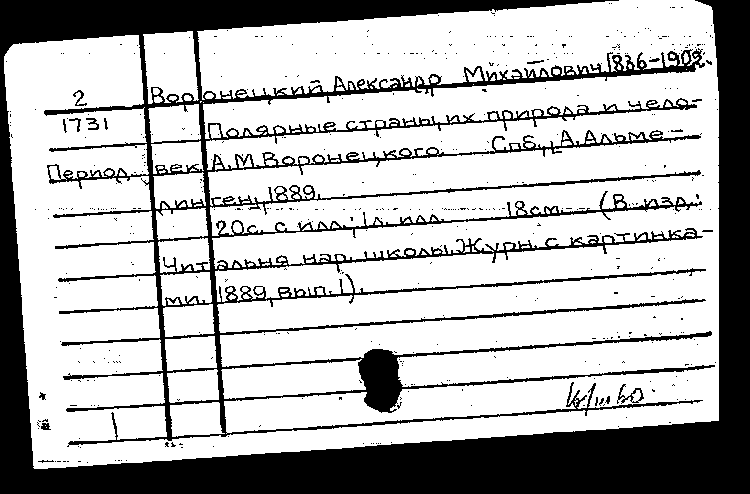 2 Воронецкий, Александр Михайлович, 1836-1902.
1731 Полярные страны, их природа и чело-
Период век А.М.Воронецкого. Спб., А.Альме-
динген, 1889.
20с. с илл.; 1л. илл. 18см. (В изд.:
Читальня нар. школы. Журн. с картинка-
ми. 1889, вып. 1).
1